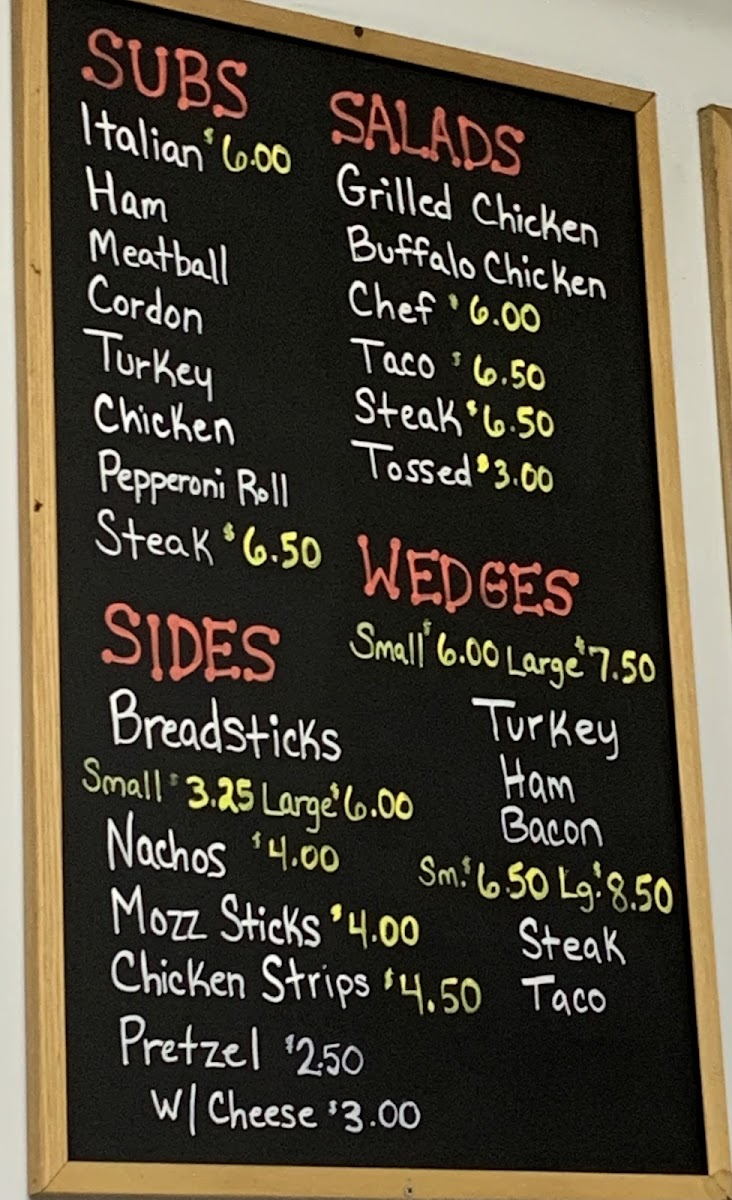 SUBS
Italian $6.00
Ham
Meatball
Cordon
Turkey
Chicken
Pepperoni Roll
Steak $6.50
SIDES
Breadsticks
Small $3.25 Large $6.00
Nachos $4.00
Mozz Sticks $4.00
Chicken Strips $4.50
Pretzel $2.50
W/ Cheese $3.00
SALADS
Grilled Chicken
Buffalo Chicken
Chef $6.00
Taco $6.50
Steak $6.50
Tossed $3.00
WEDGES
Small $6.00 Large $7.50
Turkey
Ham
Bacon
Sm. $6.50 Lg. $8.50
Steak
Taco